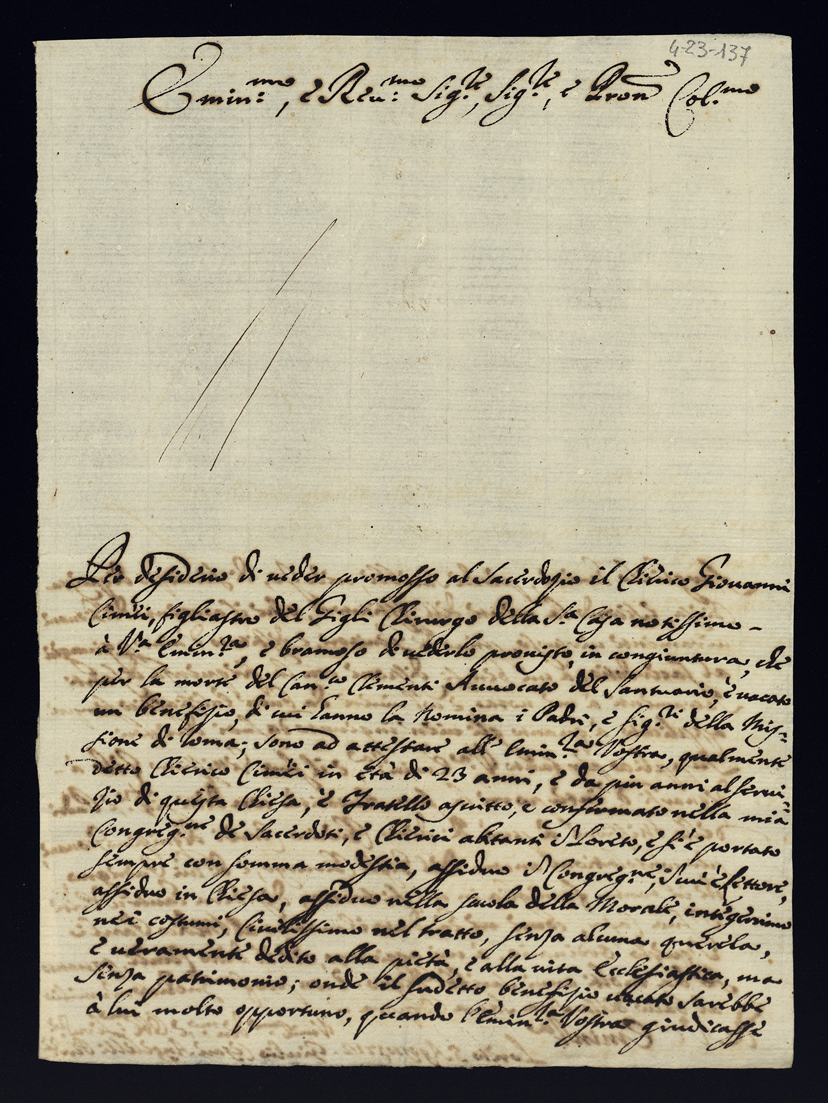 4-23-137
Emin.mo, e Reu.mo Sig.re, Sig.re, e Pron Col.mo
Per desiderio di ueder promosso al Sacerdozio il Chierico Giouanni
Cinelli, figliastro del Gigli Chirurgo della Sa Casa notissimo
à Va Emin.za, e bramoso di uederlo prouisto, in congiuntura, che
per la morte del Can.co Clementi Auuocato del Santuario, è uacato
un benefizio, di cui hanno la Nomina i Padri, e Sig.ri della Mis-
sione di Roma; sono ad attestare all' Emin.za Vostra, qualmente
detto Chierico Cinelli in età di 23 anni, e da piu anni al serui
zio di questa Chiesa, è Fratello ascritto, e confirmato nella mia
Congreg.ne de Sacerdoti, e Chierici abitanti in Loreto, e si è portato
sempre con somma modestia, assiduo in Congreg.ne, di cui è lettore,
assiduo in Chiesa, assiduo nella scuola della Morale, integerrimo
nei costumi, Ciuilissimo nel tratto, senza alcuna querela,
e ueramente dedito alla pietà, e alla uita Ecclesiastica, ma
senza patrimonio; onde il sudetto benefizio uacato sarebbe
à lui molto opportuno, quando l'Emin.za Vostra giudicasse